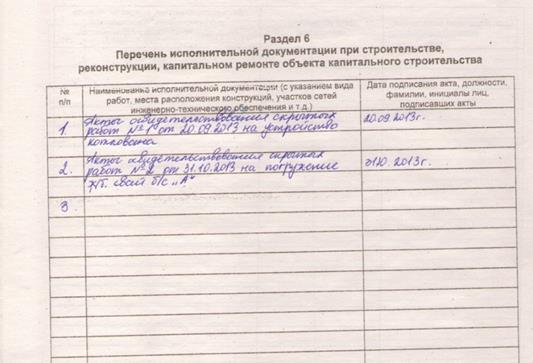 Раздел 6
Перечень исполнительной документации при строительстве,
реконструкции, капитальном ремонте объекта капитального строительства
№ п/п
Наименование исполнительной документации (с указанием вида
работ, места расположения конструкций, участков сетей
инженерно-технического обеспечения и т.д.)
Дата подписания акта, должности,
фамилии, инициалы лиц,
подписавших акты
1.
Акты освидетельствования скрытых
работ №1 от 20.09.2013 на устройство
котлована
20.09.2013г.
2.
Акты освидетельствования скрытых
работ №2 от 31.10.2013 на погружение
ж/б. свай б/с "А"
31.10.2013г.
3